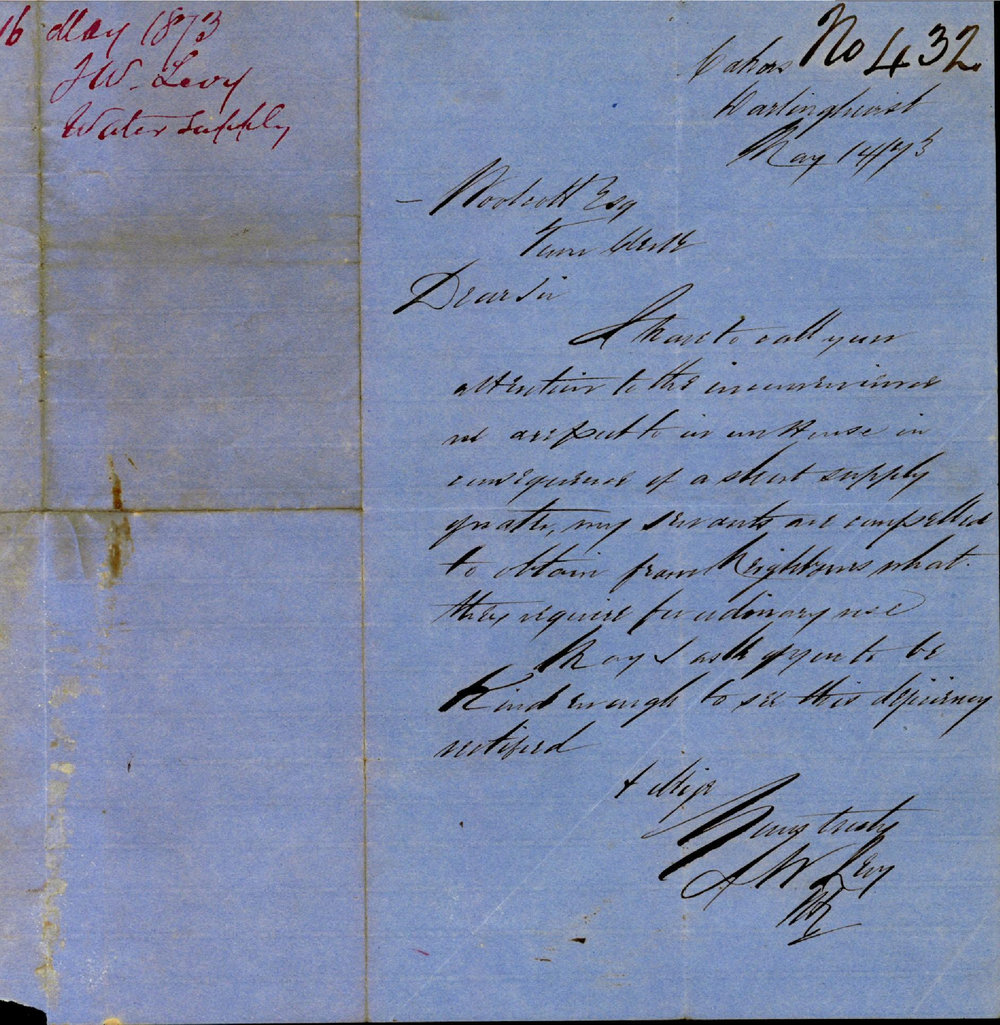 16 May 1873
J W. Levy
Water supply
No 432.
Cahors
Darlinghurst
May 14/73
Woolcott Esq
Town Clerk
Dear Sir
I have to call your
attention to the inconvenience
we are put to in our House in
consequence of a short supply
of water, my servants are compelled
to obtain from Neighbours what
they require for ordinary use
May I ask of you to be
Kind enough to see this deficiency
rectified
&
Yours truly
J W. Levy